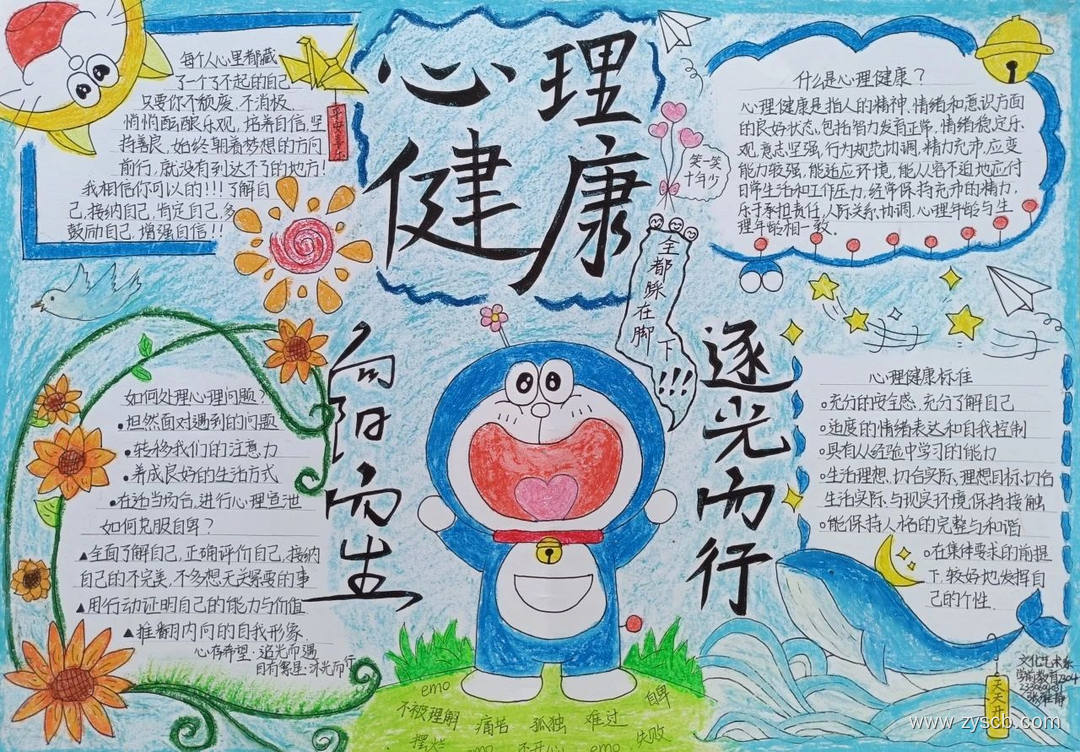 心理
健康
每个人心里都藏
了一个了不起的自己
只要你不颓废、不消极
悄悄酝酿乐观,培养自信,坚
持善良,始终朝着梦想的方向
前行,就没有到达不了的地方!
我相信你可以的!!!了解自
己,接纳自己,肯定自己,多
鼓励自己,增强自信!!
平安喜乐
笑一笑
十年少
全都踩在脚下!!!
什么是心理健康?
心理健康是指人的精神、情绪和意识方面
的良好状态,包括智力发育正常,情绪稳定乐
观,意志坚强,行为规范协调,精力充沛,应变
能力较强,能适应环境,能从容不迫地应付
日常生活和工作压力,经常保持充沛的精力,
乐于承担责任,人际关系协调,心理年龄与生
理年龄相一致。
向阳而生
逐光而行
如何处理心理问题?
•坦然面对遇到的问题
•转移我们的注意力
•养成良好的生活方式
•在适当场合,进行心理宣泄
如何克服自卑?
▲全面了解自己,正确评价自己,接纳
自己的不完美,不多想无关紧要的事
▲用行动证明自己的能力与价值
▲推翻内向的自我形象
心存希望·追光而遇
目有繁星·沐光而行
心理健康标准
o充分的安全感,充分了解自己
o适度的情绪表达和自我控制
o具有从经验中学习的能力
o生活理想,切合实际,理想目标,切合
生活实际,与现实环境保持接触
o能保持人格的完整与和谐
o在集体要求的前提
下,较好地发挥自
己的个性
emo
不被理解
痛苦
孤独
难过
自卑
摆烂
emo
不开心
emo
失败
文化艺术系
学前教育2304
天天开
www.zyscb.com